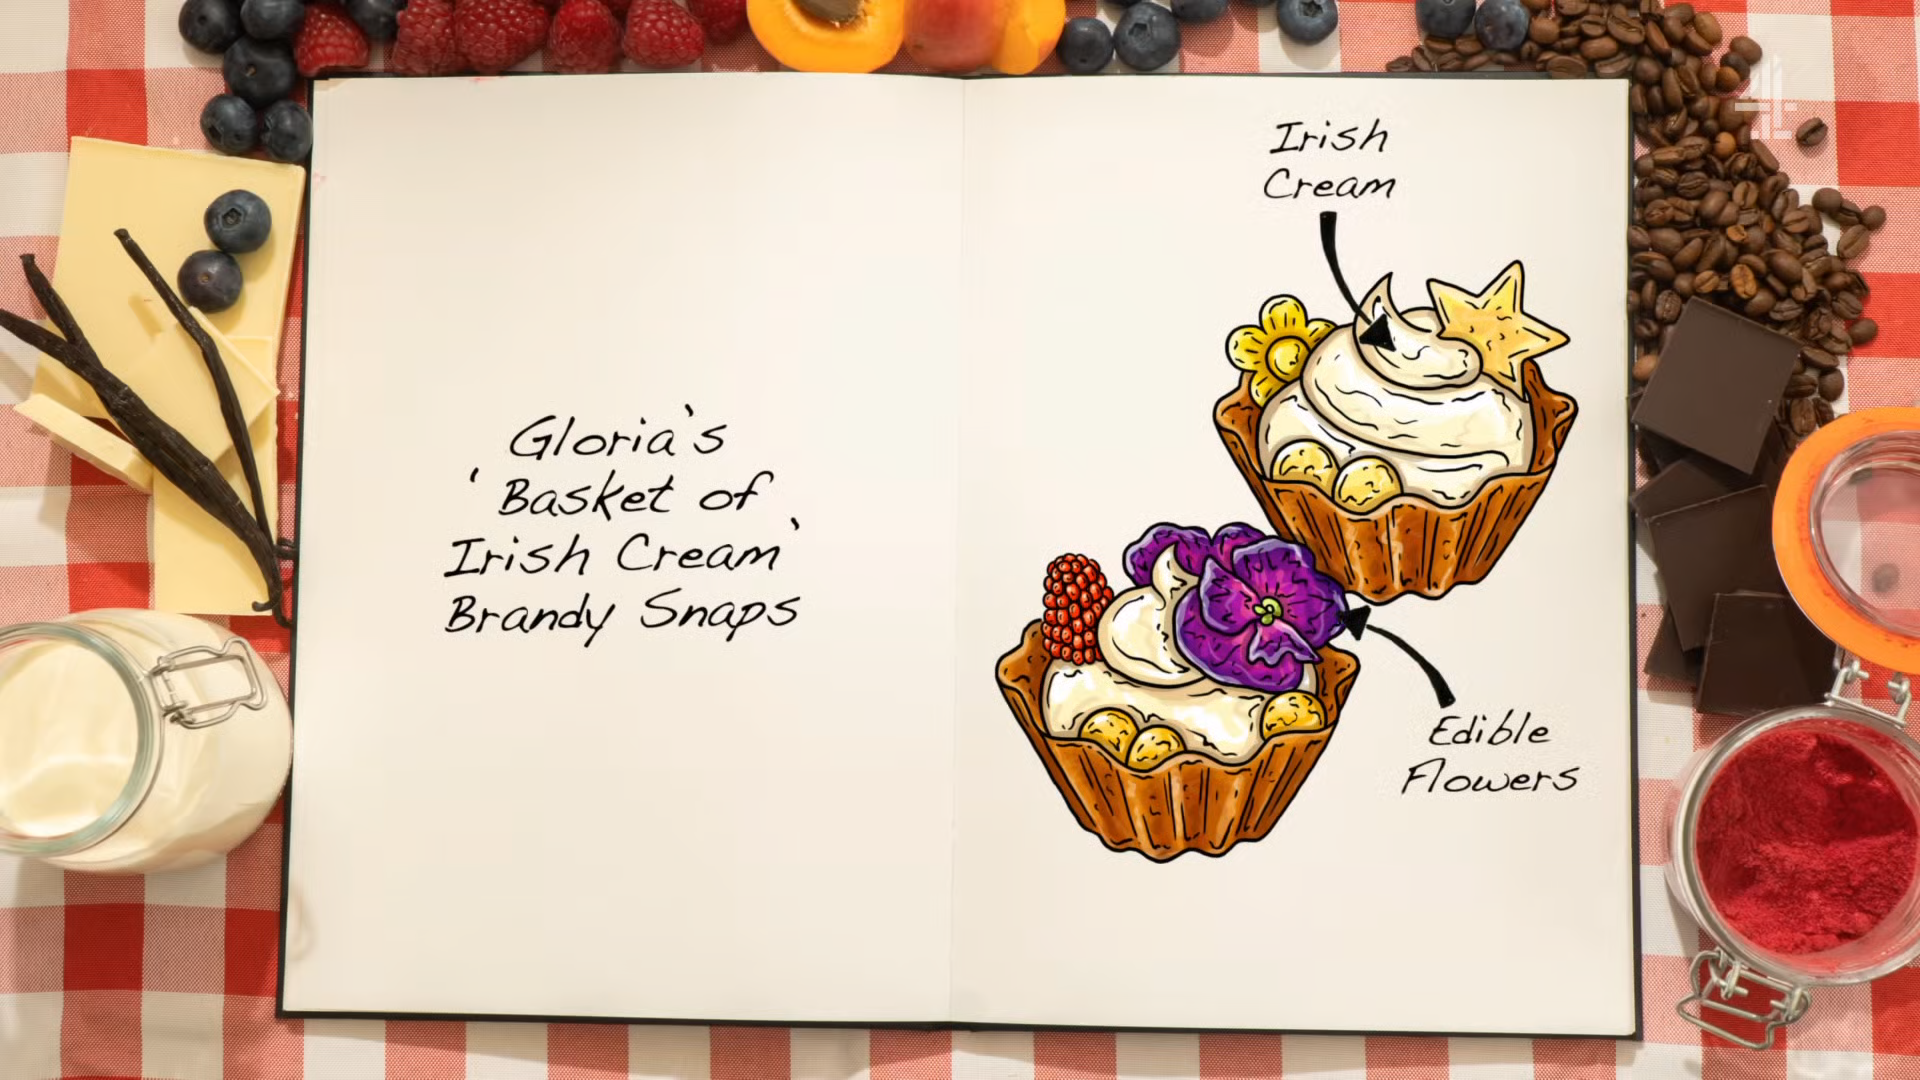 Gloria's
'Basket of
Irish Cream'
Brandy Snaps
Irish
Cream
Edible
Flowers